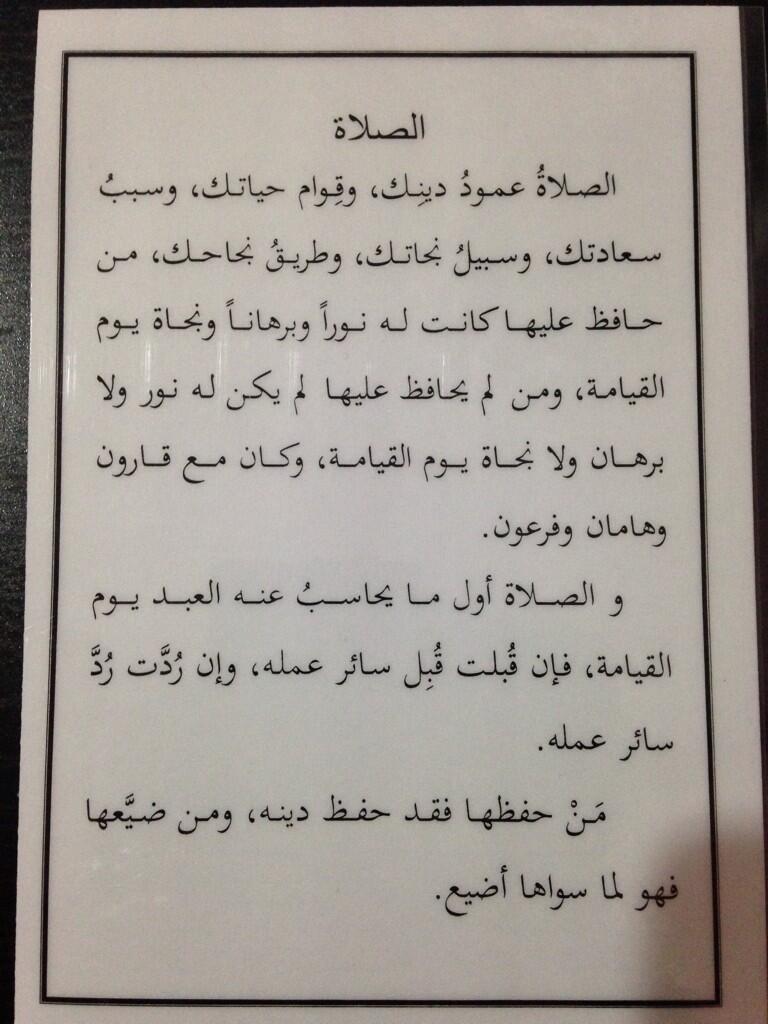 الصلاة
الصلاةُ عمودُ دينِك، وقِوام حياتك، وسببُ
سعادتك، وسبيلُ نجاتك، وطريقُ نجاحك، من
حافظ عليها كانت له نوراً وبرهاناً ونجاة يوم
القيامة، ومن لم يحافظ عليها لم يكن له نور ولا
برهان ولا نجاة يوم القيامة، وكان مع قارون
وهامان وفرعون.
و الصلاة أول ما يحاسبُ عنه العبد يوم
القيامة، فإن قُبلت قُبِل سائر عمله، وإن رُدَّت رُدَّ
سائر عمله.
مَنْ حفظها فقد حفظ دينه، ومن ضيَّعها
فهو لما سواها أضيع.